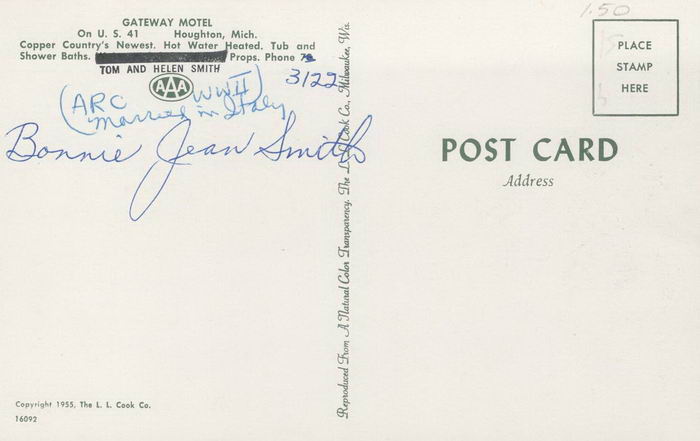 GATEWAY MOTEL
On U. S. 41 Houghton, Mich.
Copper Country's Newest. Hot Water Heated. Tub and
Shower Baths. Props. Phone
TOM AND HELEN SMITH
3122
AAA
(ARC WWII)
Married in Italy
Bonnie Jean Smith
Copyright 1955, The L. L. Cook Co.
16092
Reproduced From A Natural Color Transparency. The L. L. Cook Co., Milwaukee, Wis.
1.50
PLACE
STAMP
HERE
POST CARD
Address